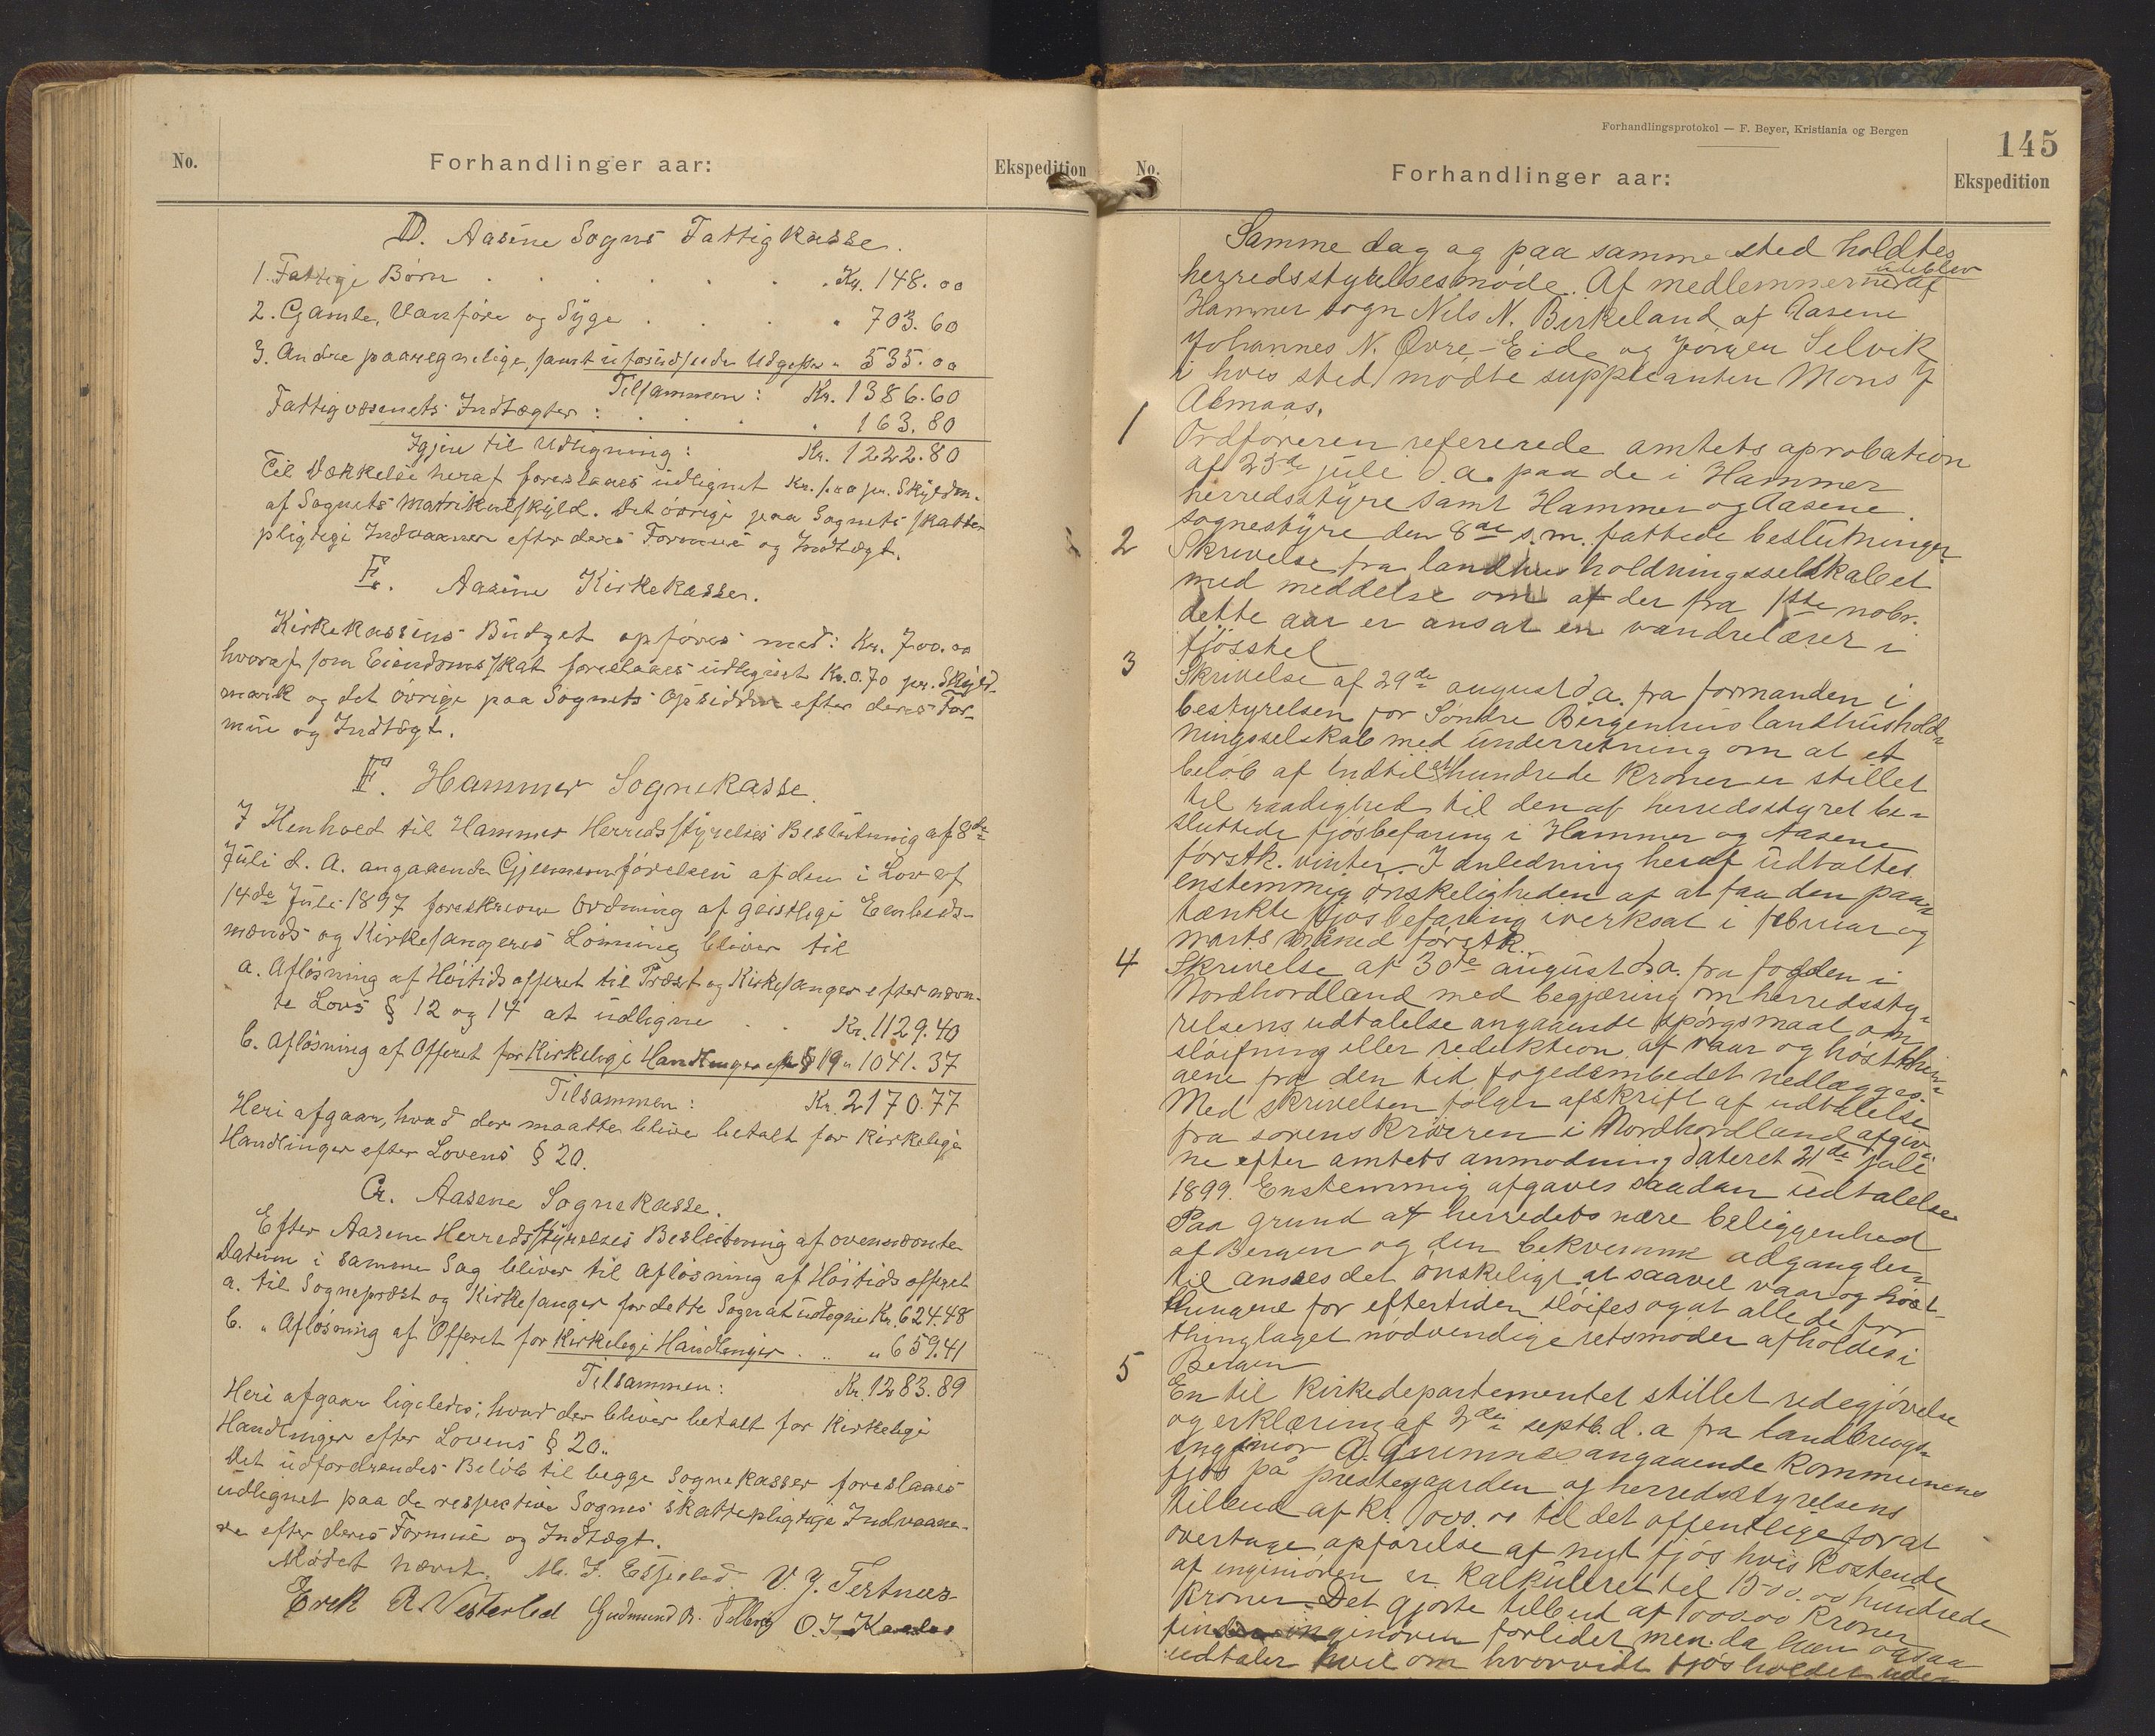 No.
Forhandlinger aar:
Ekspedition
D. Aasene Sogns Fattigkasse.
1. Fattige Børn . . . . . . Kr. 148.00
2. Gamle, Vanføre og Syge . . . " 703.60
3. Andre paaregnelige, samt uforudseede Udgifter " 535.00
Tilsammen: Kr. 1386.60
Fattigvæsenets Indtægter: . . . . " 163.80
Igjen til Udligning: Kr. 1222.80
Til Dækkelse heraf foreslaaes udlignet Kr. 1.00 pr. Skyldm.
af Sognets Matrikulskyld. Det øvrige paa Sognets skatte-
pligtige Indvaanere efter deres Formue og Indtægt.
E. Aasene Kirkekasse.
Kirkekassens Budget opføres med: Kr. 700.00
hvoraf som Eiendomsskat foreslaaes udlignet Kr. 0.70 pr. Skyld-
mark og det øvrige paa Sognets Opsiddere efter deres For-
mue og Indtægt.
F. Hammer Sognekasse.
I Henhold til Hammer Herredsstyrelses Beslutning af 8de
Juli d. A. angaaende Gjennemførelsen af den i Lov af
14de Juli 1897 foreskrevne Ordning af geistlige Embeds-
mænds og Kirkesangeres Lønning bliver til
a. Afløsning af Høitidsofferet til Præst og Kirkesanger efter nævn-
te Lovs § 12 og 14 at udligne . . Kr. 1129.40
b. Afløsning af Offeret for Kirkelige Handlinger efter § 19 " 1041.37
Tilsammen: Kr. 2170.77
Heri afgaar, hvad der maatte blive betalt for Kirkelige
Handlinger efter Lovens § 20.
G. Aasene Sognekasse.
Efter Aasene Herredsstyrelses Beslutning af ovennævnte
Datum i samme Sag bliver til Afløsning af Høitidsofferet
a. til Sogneprest og Kirkesanger for dette Sogn at udligne Kr. 624.48
b. " Afløsning af Offeret for Kirkelige Handlinger . . " 659.41
Tilsammen: Kr. 1283.89
Heri afgaar ligeledes, hvad der bliver betalt for Kirkelige
Handlinger efter Lovens § 20.
Det udfordrendes Beløb til begge Sognekasser foreslaaes
udlignet paa de respektive Sognes skattepligtige Indvaane-
re efter deres Formue og Indtægt.
Mødet hævet. M. J. Eskeland V. J. Tertnæs
Erik R. Vesterlid Gudmund A. O. J.
Forhandlingsprotokol — F. Beyer, Kristiania og Bergen
145
No.
Forhandlinger aar:
Ekspedition
Samme dag og paa samme sted holdtes
herredsstyrelsesmøde. Af medlemmerne udeblev af
Hammer sogn Nils N. Birkeland, af Aasene
Johannes N. Øvre-Eide og Jørgen Selvik
i hvis sted mødte supplanten Mons J
Almaas.
1 Ordføreren refererede amtets aprobation
af 25de juli d.a. paa de i Hammer
herredsstyre samt Hammer og Aasene
sognestyre den 8de s.m. fattede beslutninger.
2 Skrivelse fra landhusholdningsselskabet
med meddelse om at der fra 1ste nobr.
dette aar er ansat en vandrelærer i
fjøsstel
3 Skrivelse af 29de august d.a. fra formanden i
bestyrelsen for Søndre Bergenhus landhushold-
ningsselskab med underretning om at et
beløb af indtil et hundrede kroner er stillet
til raadighed til den af herredsstyret be-
sluttede fjøsbefaring i Hammer og Aasene
førstk. vinter. I anledning heraf udtaltes
enstemmig ønskeligheden af at faa den paa-
tænkte fjøsbefaring iverksat i februar og
marts måned førstk.
4 Skrivelse af 30te august d.a. fra fogden i
Nordhordland med begjæring om herredssty-
relsens udtalelse angaaende spørgsmaal om
sløifning eller reduktion af vaar og høstthin-
gene fra den tid fogedembedet nedlægges.
Med skrivelsen følger afskrift af udtalelse
fra sorenskriveren i Nordhordland afgiv-
ne efter amtets anmodning dateret 21de juli
1899. Enstemmig afgaves saadan udtalelse
Paa grund af herredets nære beliggenhed
af Bergen og den bekvemme adgang der-
til ansees det ønskeligt at saavel vaar og høst-
thingene for eftertiden sløifes og at alle de for
thinglaget nødvendige retsmøder afholdes i
Bergen
5 En til kirkedepartementet stillet redegjørelse
og erklæring af 2den septb. d.a fra landbrugs-
ingeniør G. Grimnes angaaende kommunens
fjøs på prestegaarden og herredsstyrelsens
tilbud af kr. 1000.00 til det offentlige for at
overtage opførelse af nyt fjøs hvis kostende
af ingeniøren er kalkuleret til 1500.00 hundrede
kroner. Det gjorte tilbud af 1000.00 kroner
finder ingeniøren forledet men da han ogsaa
udtaler tvil om hvorvidt fjøsholdet uden